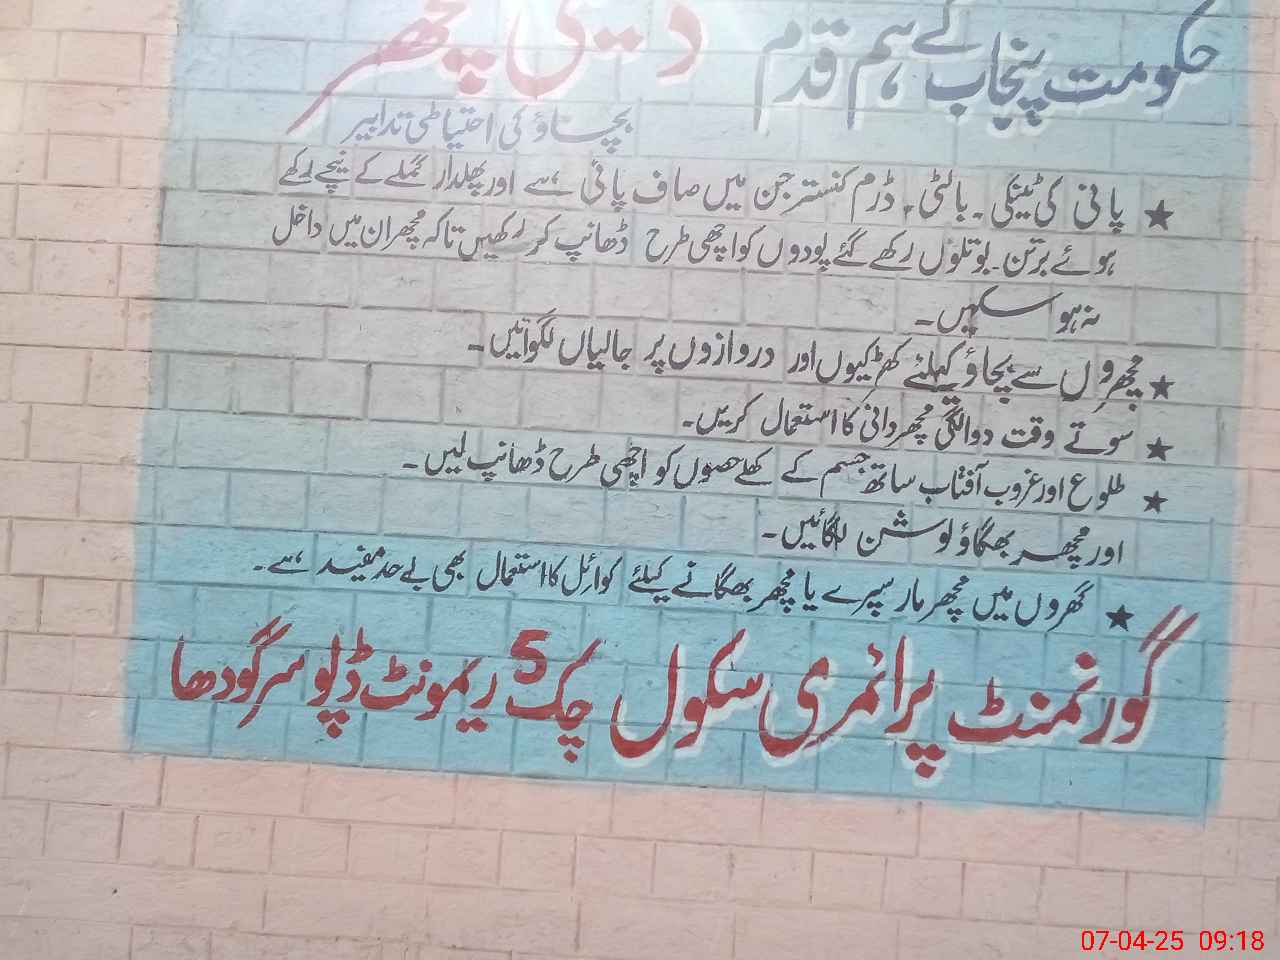 حکومت پنجاب کے ہم قدم
مچھر
بچاؤ کی احتیاطی تدابیر
★ پانی کی ٹینکی۔ بالٹی۔ ڈرم کنستر جن میں صاف پانی ہے اور پھلدار گملے کے نیچے رکھے
ہوئے برتن۔ بوتلوں رکھے گئے پودوں کو اچھی طرح ڈھانپ کر رکھیں تاکہ مچھر ان میں داخل
نہ ہو سکیں۔
★ مچھروں سے بچاؤ کیلئے کھڑکیوں اور دروازوں پر جالیاں لگوائیں۔
★ سوتے وقت دوالگی مچھردانی کا استعمال کریں۔
★ طلوع اور غروب آفتاب ساتھ جسم کے کھلے حصوں کو اچھی طرح ڈھانپ لیں۔
اور مچھر بھگاؤ لوشن لگائیں۔
★ گھروں میں مچھر مار سپرے یا مچھر بھگانے کیلئے کوائل کا استعمال بھی بے حد مفید ہے۔
گورنمنٹ پرائمری سکول چک 5 ریمونٹ ڈپو سرگودھا
07-04-25 09:18